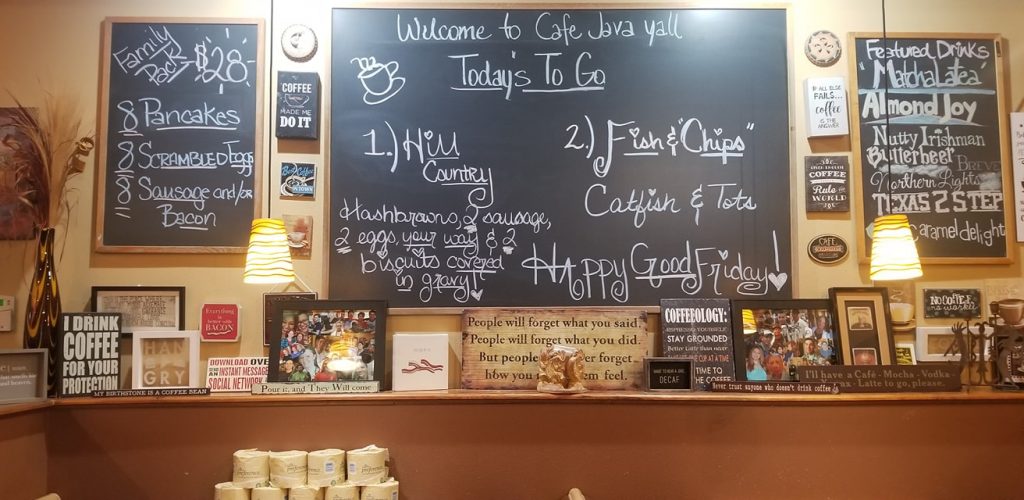 Family
Pack - $28-
8 Pancakes
8 Scrambled Eggs
8 Sausage and/or
Bacon
COFFEE
MADE ME
DO IT
Best Coffee
IN TOWN
Welcome to Cafe Java yall
Today's To Go
1.) Hill
Country
Hashbrowns, 2 sausage,
2 eggs, your way & 2
biscuits covered
in gravy!
2.) Fish & "Chips"
Catfish & Tots
Happy Good Friday!
IF ALL ELSE
FAILS...
coffee
IS THE
ANSWER
COFFEE
Rule the
WORLD
CAFE
Featured Drinks
"Matcha Latea"
Almond Joy
Nutty Irishman
Butterbeer BREVE
Northern Lights
TEXAS 2 STEP
Caramel delight
I DRINK
COFFEE
FOR YOUR
PROTECTION
HAN
GRY
Everything
is better with
BACON
DOWNLOAD OVER
AN INSTANT MESSAGE
SOCIAL NETWORK
MY BIRTHSTONE IS A COFFEE BEAN
Pour it, and They Will come
People will forget what you said,
People will forget what you did,
But people never forget
how you them feel.
COFFEEOLOGY:
ESPRESSO YOURSELF
STAY GROUNDED
Better latte than never
DECAF
Never trust anyone who doesn't drink coffee
NO COFFEE
no workee
I'll have a Café - Mocha - Vodka
- Latte to go, please.